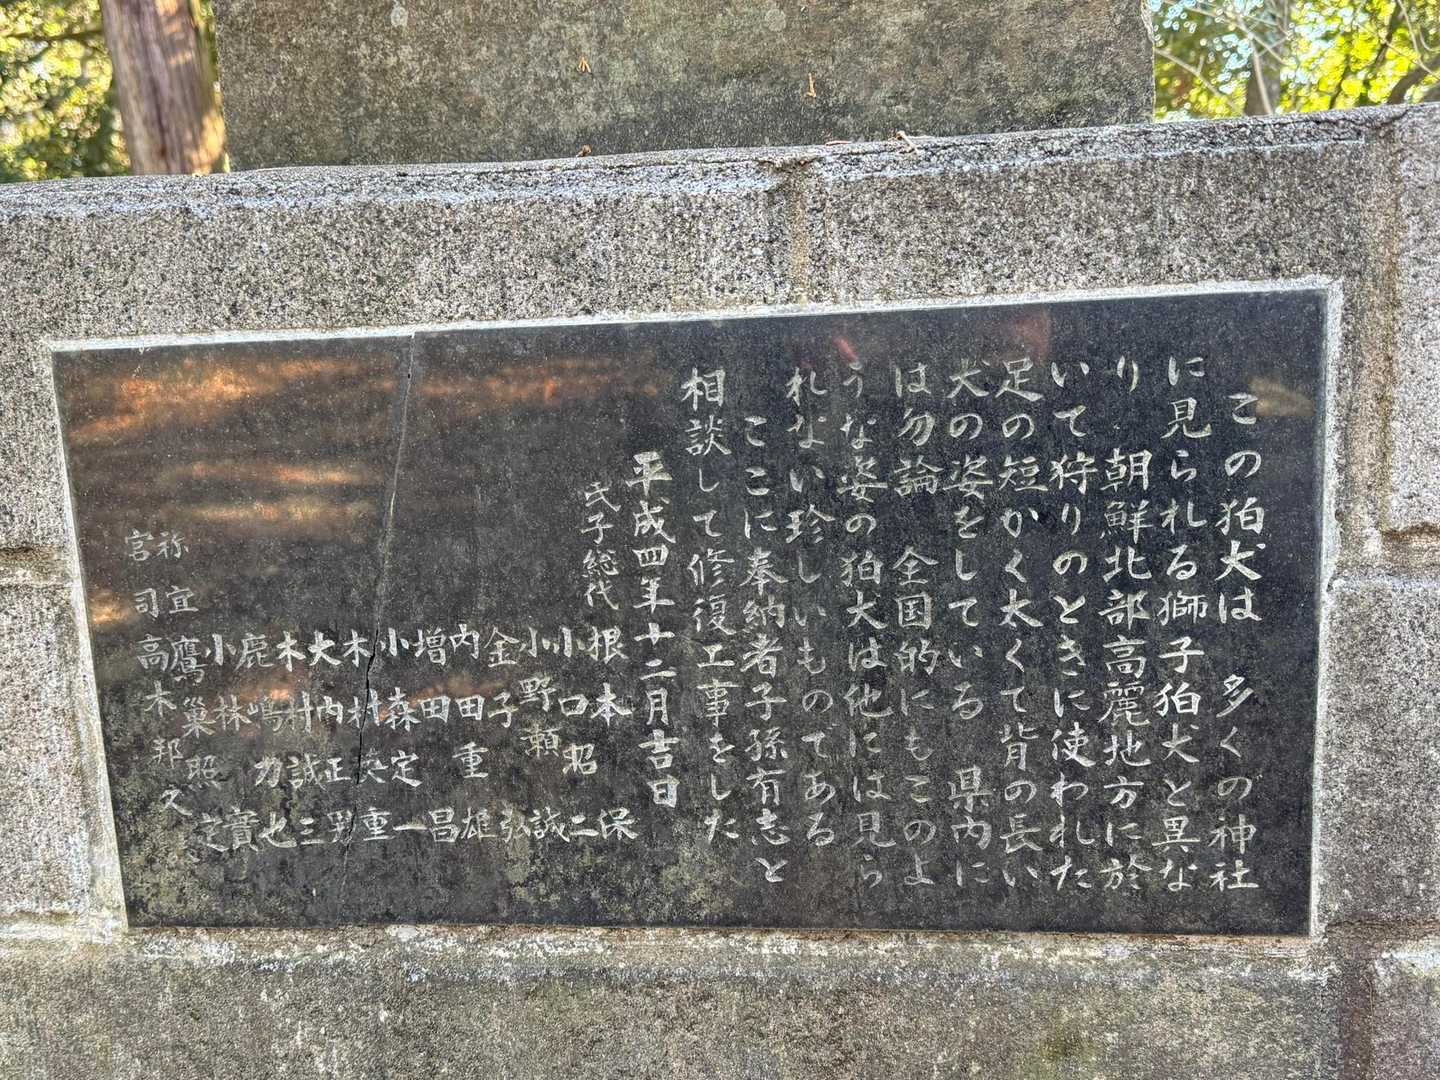 この狛犬は　多くの神社
に見られる獅子狛犬と異な
り　朝鮮北部高麗地方に於
いて狩りのときに使われた
足の短かく太くて背の長い
犬の姿をしている　県内に
は勿論　全国的にもこのよ
うな姿の狛犬は他には見ら
れない珍しいものである
ここに奉納者子孫有志と
相談して修復工事をした
平成四年十二月吉日
氏子総代　根本　保
小口昭二
小野瀬　誠
金子　弘
内田重雄
増田　昌
小森定一
木村英重
大内正男
木村誠三
鹿嶋力也
小林　實
祢宜　鷹巣照之
宮司　高木邦久